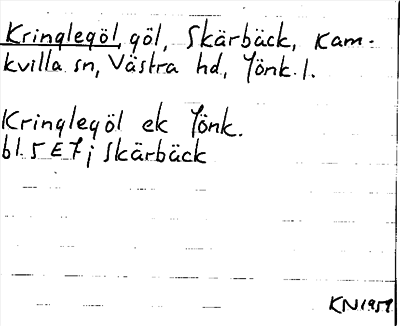 Kringlegöl, göl, Skärbäck, Kam-
kvilla sn, Västra hd, Jönk. l.
Kringlegöl ek Jönk.
bl. 5 E 7; Skärbäck
KN 1959